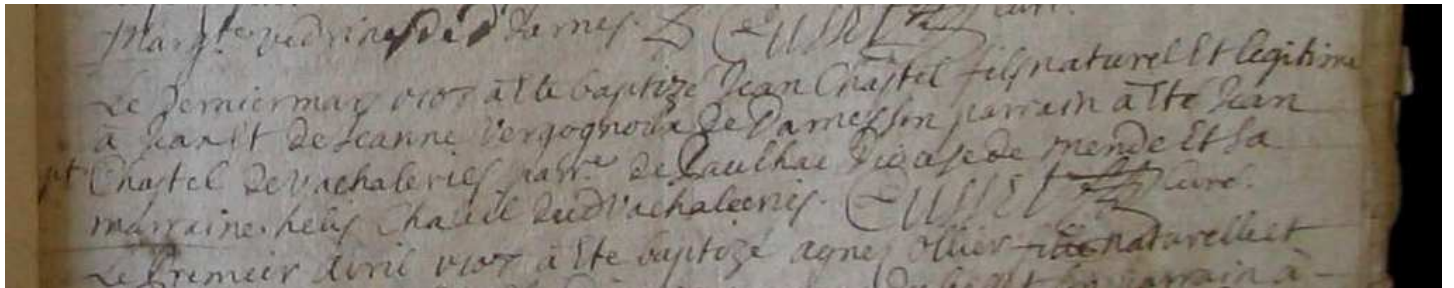 Marg.te vedrines de Darnes. Cussel curé.
Le dernier mars 1708 a ete baptizé Jean Chastel fils naturel Et legitime
a Jean Et de Jeanne Vergognoux de Darnes son parrain a ete Jean
Chastel de vachaleries parr.e de Paulhac Diocese de mende Et sa
marraine helis Chastel dud vachaleries. Cussel curé.
Le premier Avril a ete baptizé agnes ollier naturelle et
parrain a